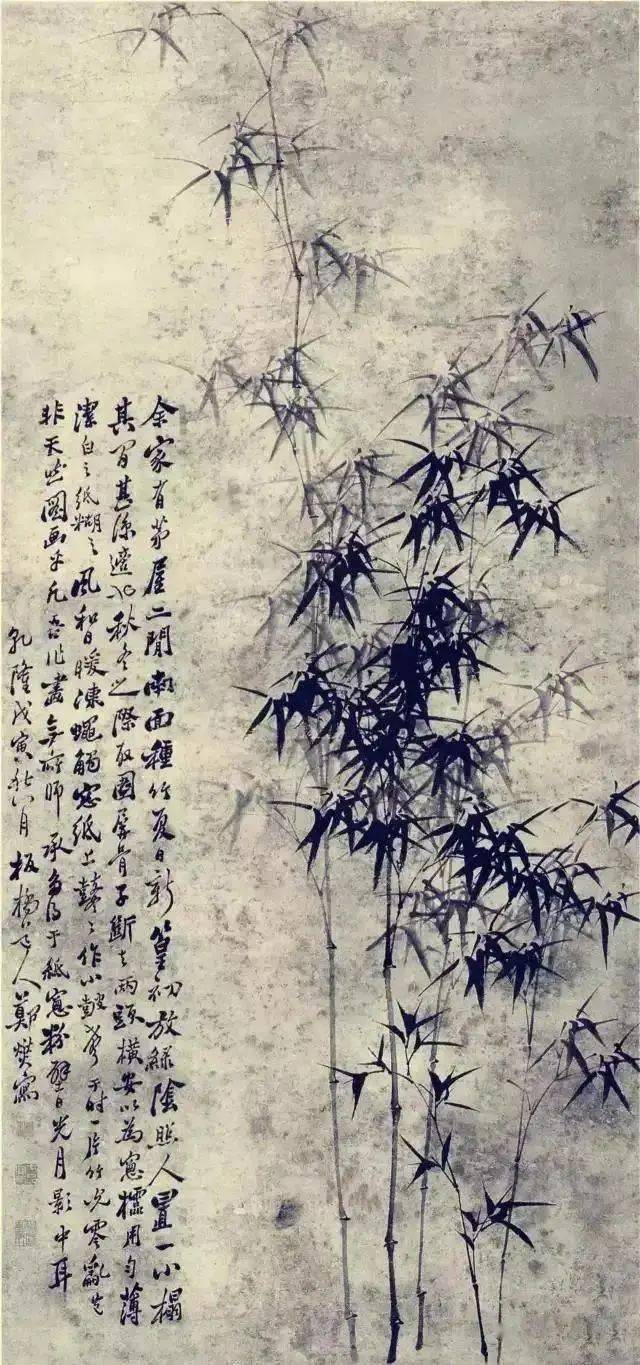 余家有茅屋二間南面種竹夏日新篁初放綠陰照人置一小榻
其間甚涼適也秋冬之際取圍屏骨子斷去兩頭橫安以為窗櫺用勻薄
潔白之紙糊之風和日暖凍蠅觸窗紙上鼕〻作小鼓聲于時一片竹影零亂豈
非天然圖畫乎凡吾作畫無所師承多得于紙窗粉壁日光月影中耳
乾隆戊寅秋八月板橋道人鄭燮寫